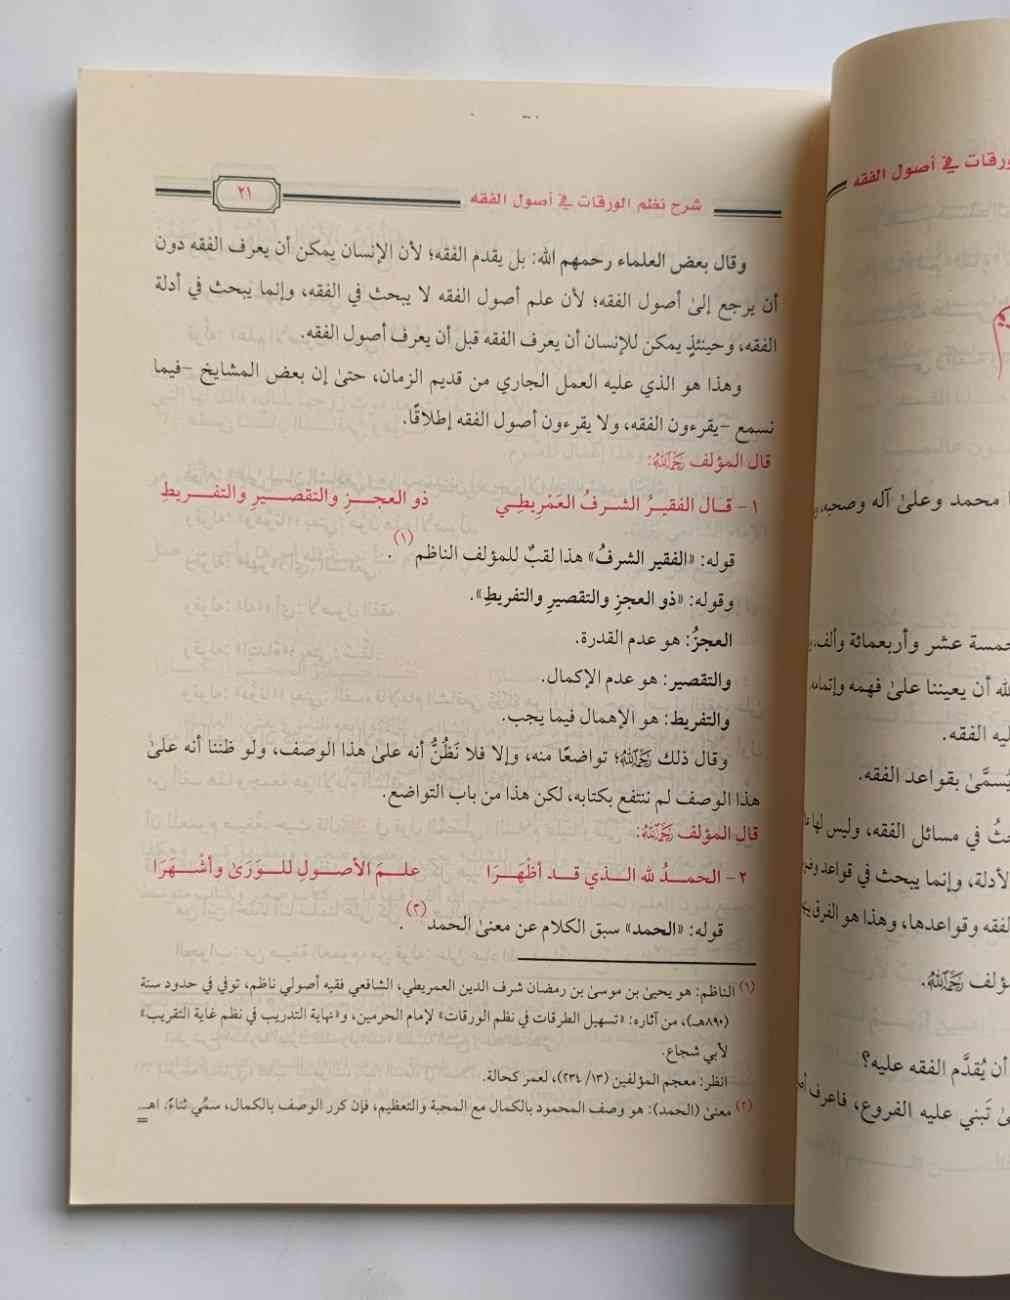 شرح نظم الورقات في أصول الفقه
٢١
وقال بعض العلماء رحمهم الله: بل يقدم الفقه؛ لأن الإنسان يمكن أن يعرف الفقه دون
أن يرجع إلى أصول الفقه؛ لأن علم أصول الفقه لا يبحث في الفقه، وإنما يبحث في أدلة
الفقه، وحينئذٍ يمكن للإنسان أن يعرف الفقه قبل أن يعرف أصول الفقه.
وهذا هو الذي عليه العمل الجاري من قديم الزمان، حتىٰ إن بعض المشايخ -فيما
نسمع -يقرءون الفقه، ولا يقرءون أصول الفقه إطلاقًا.
قال المؤلف رَحِمَهُ اللهُ:
١- قـال الفقيـرُ الشـرفُ العَمْرِيطِـي ذو العجـزِ والتقصيـرِ والتفـريطِ
قوله: «الفقير الشرفُ» هذا لقبٌ للمؤلف الناظم(١).
وقوله: «ذو العجزِ والتقصيرِ والتفريطِ».
العجزُ: هو عدم القدرة.
والتقصير: هو عدم الإكمال.
والتفريط: هو الإهمال فيما يجب.
وقال ذلك رَحِمَهُ اللهُ؛ تواضعًا منه، وإلا فلا نَظُنُّ أنه علىٰ هذا الوصف، ولو ظننا أنه علىٰ
هذا الوصف لم ننتفع بكتابه، لكن هذا من باب التواضع.
قال المؤلف رَحِمَهُ اللهُ:
٢- الحمـدُ لله الـذي قـد أظْهَـرَا علـمَ الأصـولِ للـوَرَىٰ وأشْـهَرَا
قوله: «الحمد» سبق الكلام عن معنىٰ الحمد(٢).
(١) الناظم: هو يحيىٰ بن موسىٰ بن رمضان شرف الدين العمريطي، الشافعي فقيه أصولي ناظم، توفي في حدود سنة
(٨٩٠هـ)، من آثاره: «تسهيل الطرقات في نظم الورقات» لإمام الحرمين، و«نهاية التدريب في نظم غاية التقريب»
لأبي شجاع.
انظر: معجم المؤلفين (١٣/ ٢٣٤)، لعمر كحالة.
(٢) معنىٰ (الحمد): هو وصف المحمود بالكمال مع المحبة والتعظيم، فإن كرر الوصف بالكمال، سمُي ثناءً. اهـ.
=
ورقات في أصول الفقه
ا محمد وعلىٰ آله وصحبه، و
خمسة عشر وأربعمائة وألف،
لله أن يعيننا علىٰ فهمه وإتمامه
ليه الفقه.
يُسمَّىٰ بقواعد الفقه.
حثُ في مسائل الفقه، وليس لها
الأدلة، وإنما يبحث في قواعد
لفقه وقواعدها، وهذا هو الفرق
مؤلف رَحِمَهُ اللهُ.
أن يُقدَّم الفقه عليه؟
ىٰ تَبني عليه الفروع، فاعرف